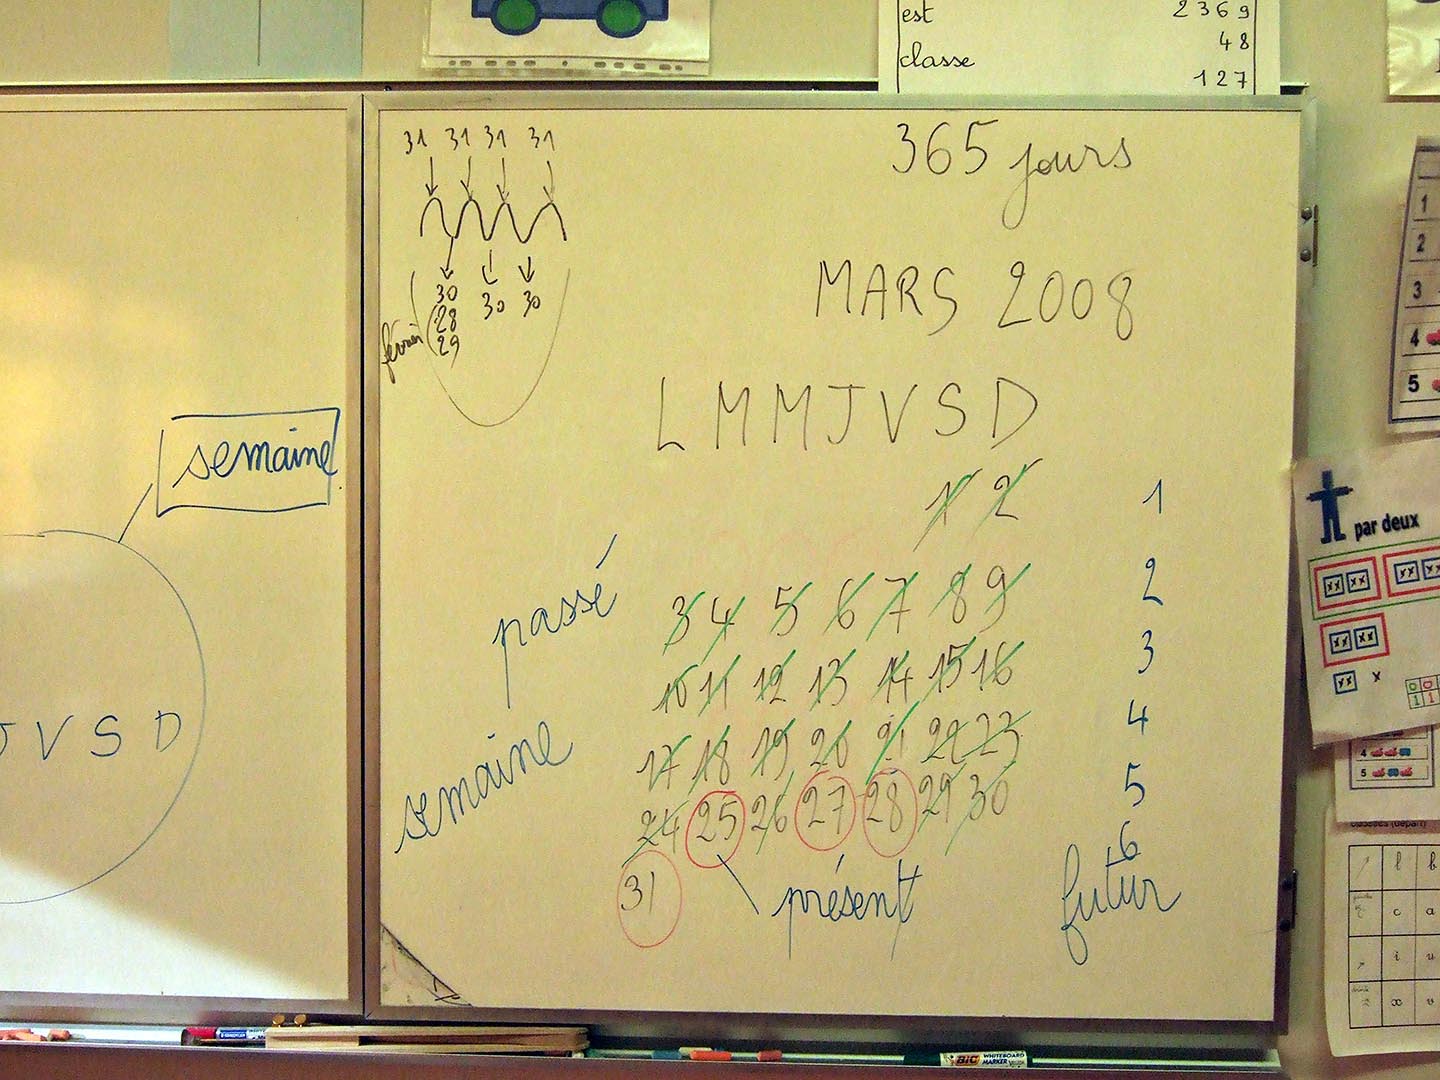 est 2369
48
classe
127
31 31 31 31
365 jours
30 30 30
28
février
29
MARS 2008
L M M J V S D
semaine
1 2 1
passé
3 4 5 6 7 8 9 2
10 11 12 13 14 15 16 3
semaine
17 18 19 20 21 22 23 4
24 25 26 27 28 29 30 5
6
31
présent
futur
V S D
par deux
1
2
3
4
5
4
5
l b
c a
i u
BIC WHITEBOARD MARKER